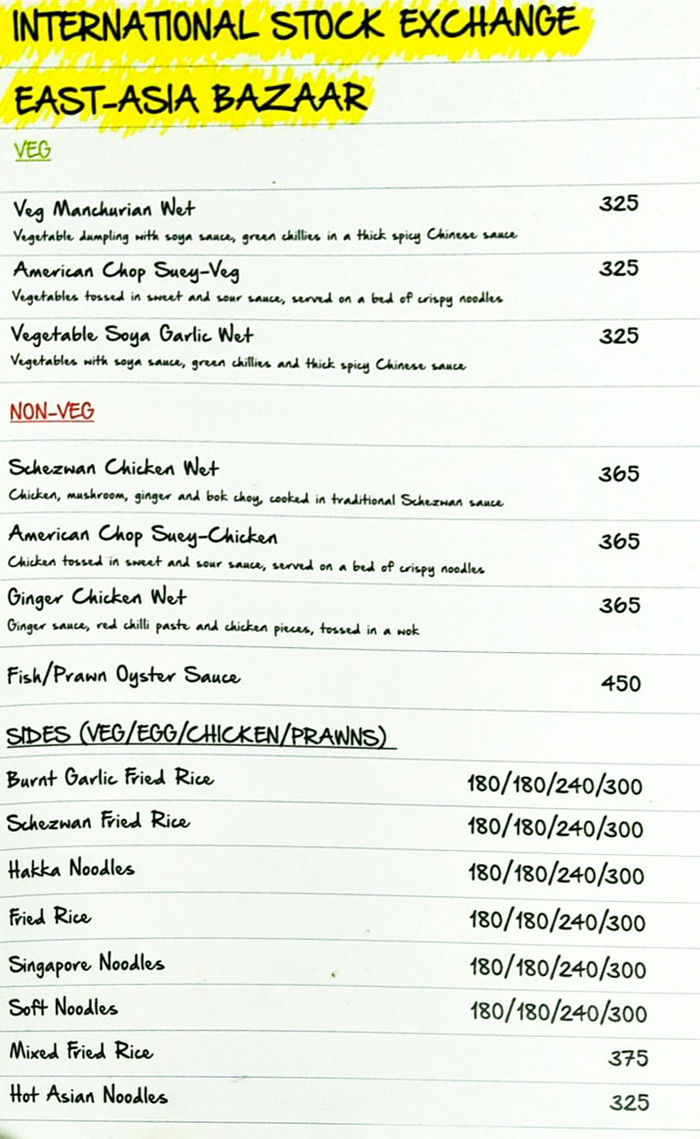 INTERNATIONAL STOCK EXCHANGE
EAST-ASIA BAZAAR
VEG
Veg Manchurian Wet 325
Vegetable dumpling with soya sauce, green chillies in a thick spicy Chinese sauce
American Chop Suey-Veg 325
Vegetables tossed in sweet and sour sauce, served on a bed of crispy noodles
Vegetable Soya Garlic Wet 325
Vegetables with soya sauce, green chillies and thick spicy Chinese sauce
NON-VEG
Schezwan Chicken Wet 365
Chicken, mushroom, ginger and bok choy, cooked in traditional Schezwan sauce
American Chop Suey-Chicken 365
Chicken tossed in sweet and sour sauce, served on a bed of crispy noodles
Ginger Chicken Wet 365
Ginger sauce, red chilli paste and chicken pieces, tossed in a wok
Fish/Prawn Oyster Sauce 450
SIDES (VEG/EGG/CHICKEN/PRAWNS)
Burnt Garlic Fried Rice 180/180/240/300
Schezwan Fried Rice 180/180/240/300
Hakka Noodles 180/180/240/300
Fried Rice 180/180/240/300
Singapore Noodles 180/180/240/300
Soft Noodles 180/180/240/300
Mixed Fried Rice 375
Hot Asian Noodles 325